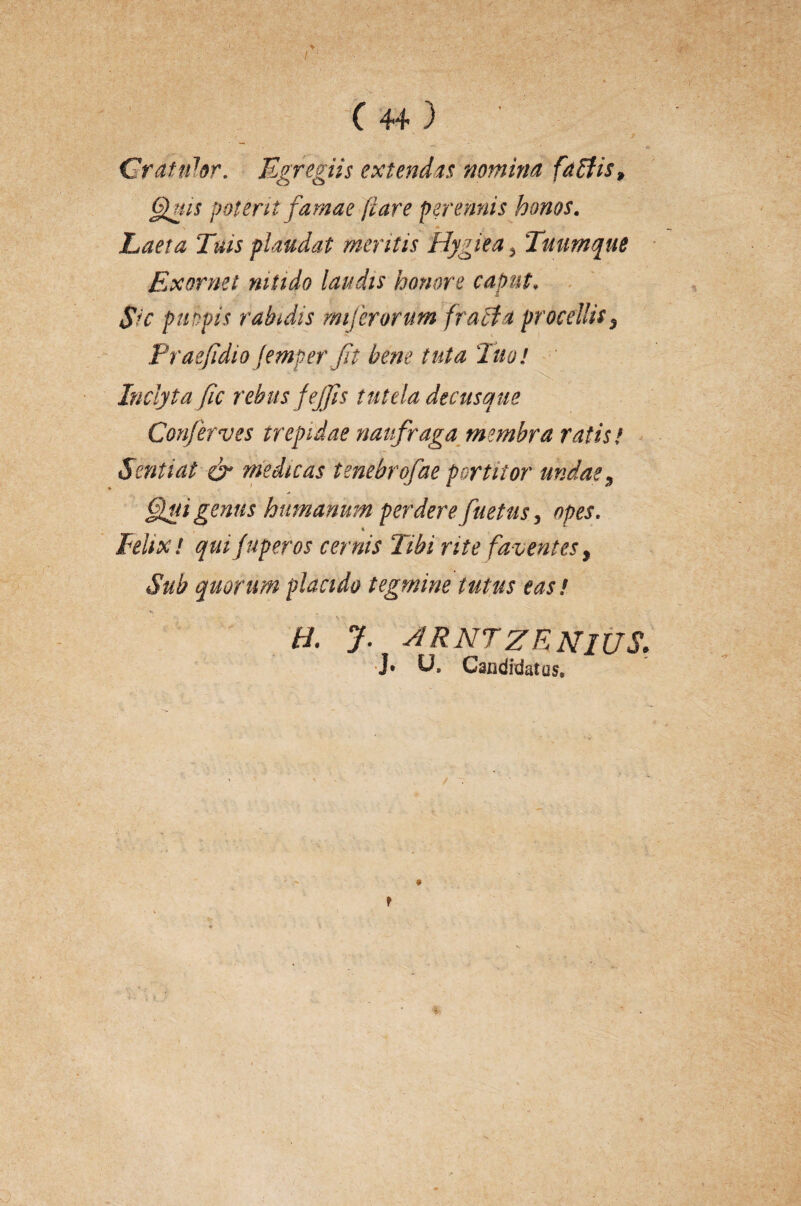 ( 44 )
Gratulor. Egregiis extendas nomina factis,
Quis poterit famae ſtare perennis honos.
Laeta Tuis plaudat meritis Hygiea, Tuumque
Exornet nitido laudis honore caput.
Sic puppis rabidis miſerorum fracta procellis,
Praeſidio ſemper ſit bene tuta Tuo!
Inclyta ſic rebus feſſis tutela decusque
Conſerves trepidae naufraga membra ratis!
Sentiat & medicas tenebroſae portitor undae,
Qui genus humanum perdere ſuetus, opes.
Felix! qui ſuperos cernis Tibi rite faventes,
Sub quorum placido tegmine tutus eas!
H. J. ARNTZENIUS.
J. U. Candidatus.